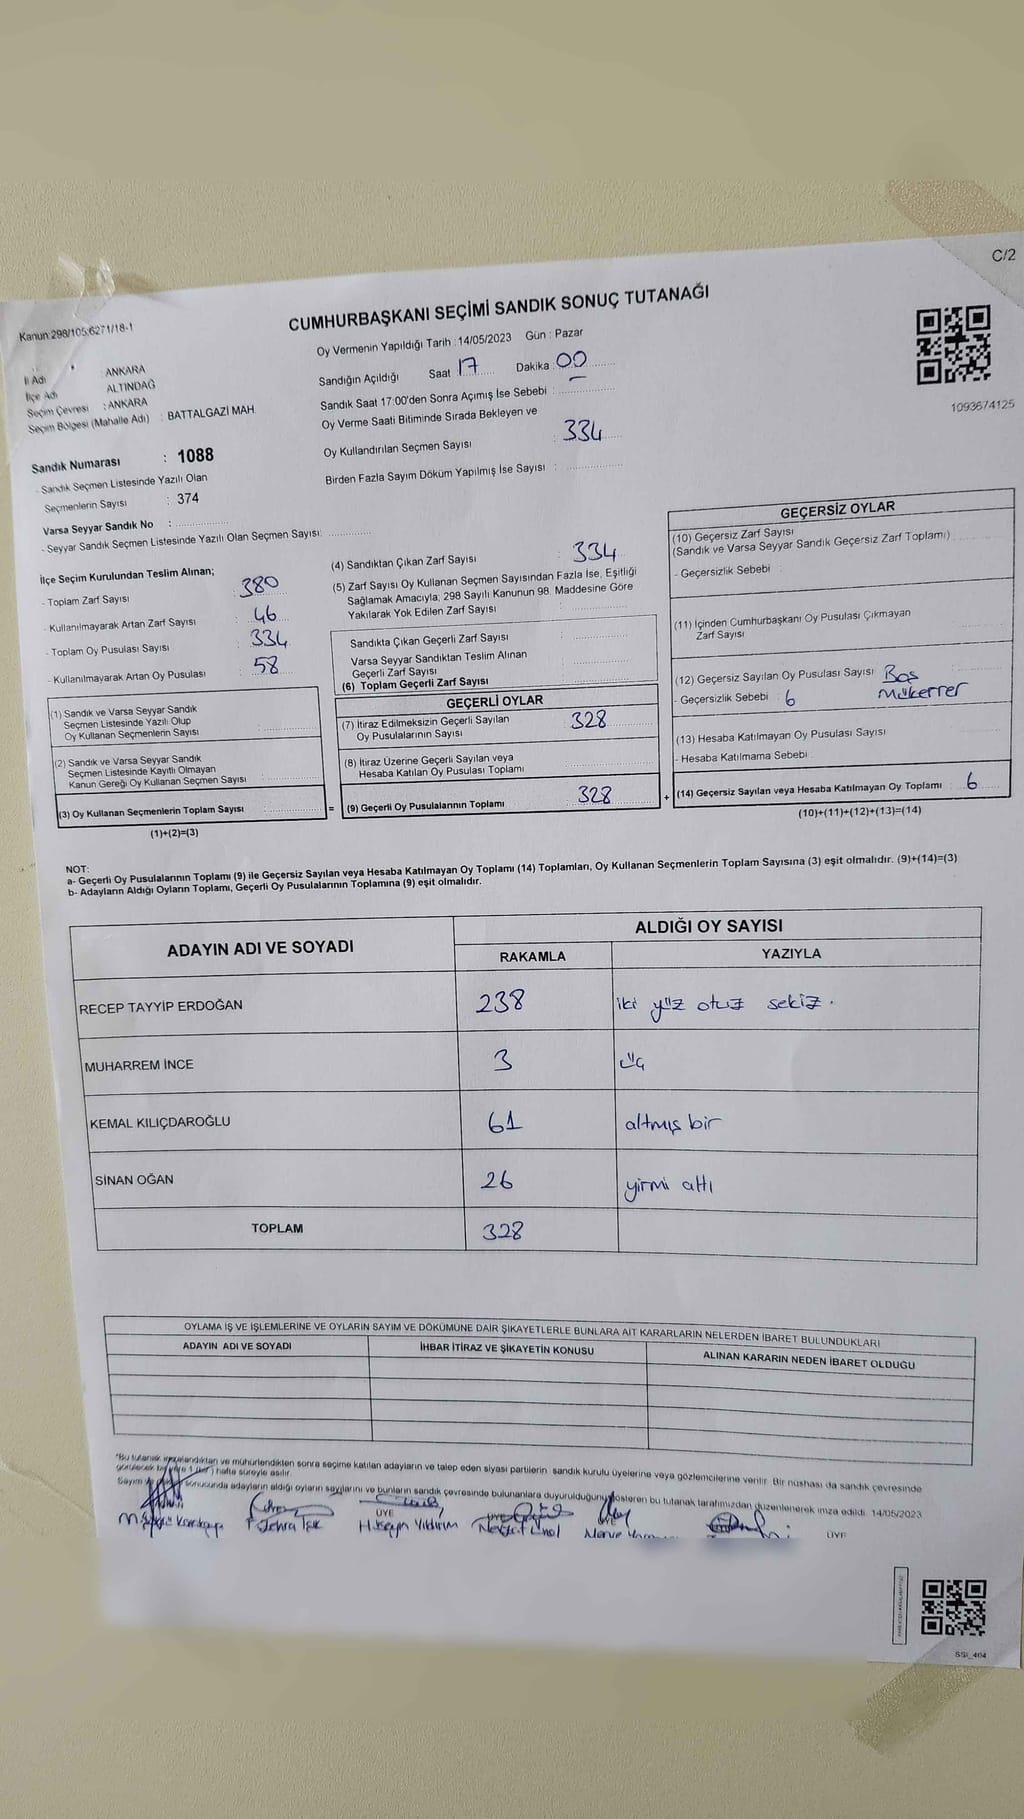 C/2
Kanun:298/105;6271/18-1
CUMHURBAŞKANI SEÇİMİ SANDIK SONUÇ TUTANAĞI
1093674125
İl Adı : ANKARA
İlçe Adı : ALTINDAĞ
Seçim Çevresi : ANKARA
Seçim Bölgesi (Mahalle Adı) : BATTALGAZİ MAH.
Sandık Numarası : 1088
- Sandık Seçmen Listesinde Yazılı Olan
Seçmenlerin Sayısı : 374
Varsa Seyyar Sandık No :
- Seyyar Sandık Seçmen Listesinde Yazılı Olan Seçmen Sayısı:
Oy Vermenin Yapıldığı Tarih : 14/05/2023 Gün : Pazar
Sandığın Açıldığı Saat 17 Dakika 00
Sandık Saat 17:00'den Sonra Açımış İse Sebebi : —
Oy Verme Saati Bitiminde Sırada Bekleyen ve
Oy Kullandırılan Seçmen Sayısı : 334
Birden Fazla Sayım Döküm Yapılmış İse Sayısı :
İlçe Seçim Kurulundan Teslim Alınan;
- Toplam Zarf Sayısı : 380
- Kullanılmayarak Artan Zarf Sayısı : 46
- Toplam Oy Pusulası Sayısı : 334
- Kullanılmayarak Artan Oy Pusulası : 58
(1) Sandık ve Varsa Seyyar Sandık
Seçmen Listesinde Yazılı Olup
Oy Kullanan Seçmenlerin Sayısı :
(2) Sandık ve Varsa Seyyar Sandık
Seçmen Listesinde Kayıtlı Olmayan
Kanun Gereği Oy Kullanan Seçmen Sayısı :
(3) Oy Kullanan Seçmenlerin Toplam Sayısı
(1)+(2)=(3)
(4) Sandıktan Çıkan Zarf Sayısı : 334
(5) Zarf Sayısı Oy Kullanan Seçmen Sayısından Fazla İse, Eşitliği
Sağlamak Amacıyla; 298 Sayılı Kanunun 98. Maddesine Göre
Yakılarak Yok Edilen Zarf Sayısı :
Sandıkta Çıkan Geçerli Zarf Sayısı :
Varsa Seyyar Sandıktan Teslim Alınan
Geçerli Zarf Sayısı :
(6) Toplam Geçerli Zarf Sayısı
GEÇERLİ OYLAR
(7) İtiraz Edilmeksizin Geçerli Sayılan
Oy Pusulalarının Sayısı 328
(8) İtiraz Üzerine Geçerli Sayılan veya
Hesaba Katılan Oy Pusulası Toplamı
= (9) Geçerli Oy Pusulalarının Toplamı 328
GEÇERSİZ OYLAR
(10) Geçersiz Zarf Sayısı
(Sandık ve Varsa Seyyar Sandık Geçersiz Zarf Toplamı)
- Geçersizlik Sebebi :
(11) İçinden Cumhurbaşkanı Oy Pusulası Çıkmayan
Zarf Sayısı
(12) Geçersiz Sayılan Oy Pusulası Sayısı : Boş
- Geçersizlik Sebebi : 6 mükerrer
(13) Hesaba Katılmayan Oy Pusulası Sayısı
- Hesaba Katılmama Sebebi
+ (14) Geçersiz Sayılan veya Hesaba Katılmayan Oy Toplamı : 6
(10)+(11)+(12)+(13)=(14)
NOT:
a- Geçerli Oy Pusulalarının Toplamı (9) ile Geçersiz Sayılan veya Hesaba Katılmayan Oy Toplamı (14) Toplamları, Oy Kullanan Seçmenlerin Toplam Sayısına (3) eşit olmalıdır. (9)+(14)=(3)
b- Adayların Aldığı Oyların Toplamı, Geçerli Oy Pusulalarının Toplamına (9) eşit olmalıdır.
ADAYIN ADI VE SOYADI ALDIĞI OY SAYISI
RAKAMLA YAZIYLA
RECEP TAYYİP ERDOĞAN 238 iki yüz otuz sekiz.
MUHARREM İNCE 3 üç
KEMAL KILIÇDAROĞLU 61 altmış bir
SİNAN OĞAN 26 yirmi altı
TOPLAM 328
OYLAMA İŞ VE İŞLEMLERİNE VE OYLARIN SAYIM VE DÖKÜMÜNE DAİR ŞİKAYETLERLE BUNLARA AİT KARARLARIN NELERDEN İBARET BULUNDUKLARI
ADAYIN ADI VE SOYADI İHBAR İTİRAZ VE ŞİKAYETİN KONUSU ALINAN KARARIN NEDEN İBARET OLDUĞU
*Bu tutanak imzalandıktan ve mühürlendikten sonra seçime katılan adayların ve talep eden siyasi partilerin sandık kurulu üyelerine veya gözlemcilerine verilir. Bir nüshası da sandık çevresinde
görülecek bir yere 1 (bir) hafta süreyle asılır.
Sayım ve sonucunda adayların aldığı oyların sayılarını ve bunların sandık çevresinde bulunanlara duyurulduğunu gösteren bu tutanak tarafımızdan düzenlenerek imza edildi. 14/05/2023
ÜYE ÜYE ÜYE ÜYE
Hüseyin Yıldırım
SSI_404